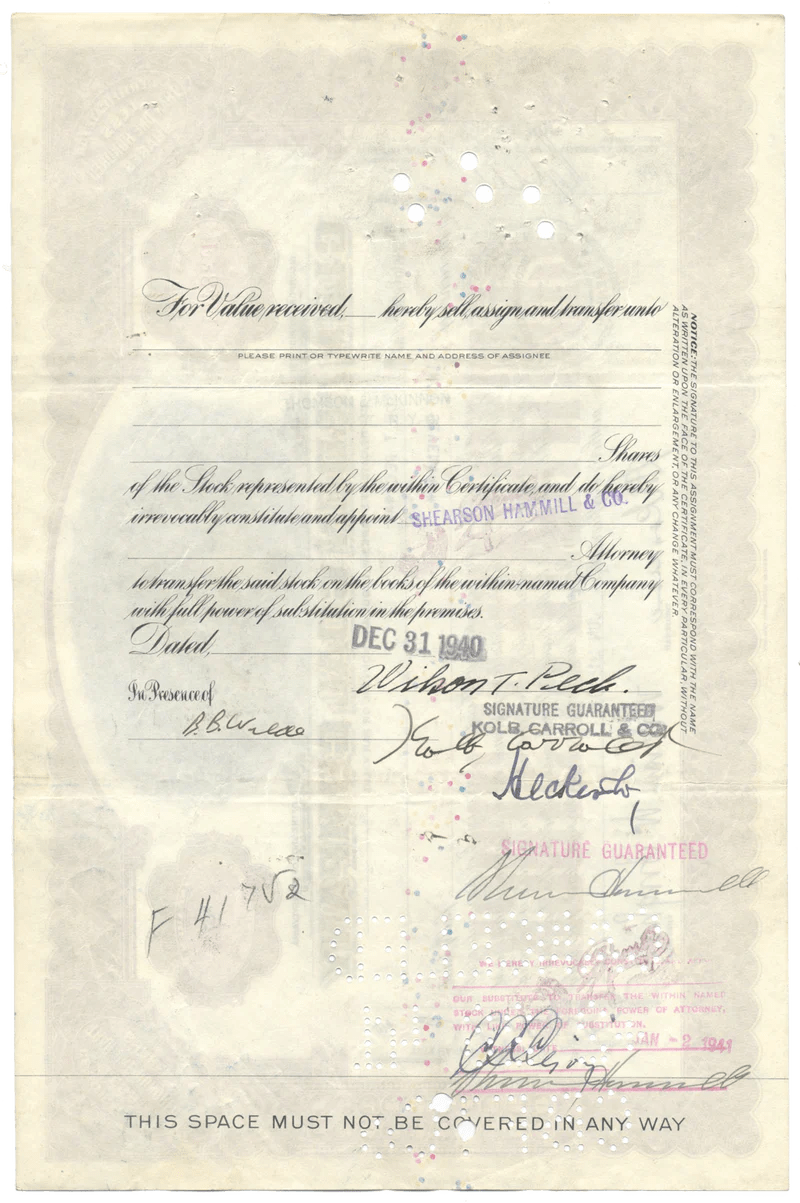 For Value received, hereby sell, assign and transfer unto
PLEASE PRINT OR TYPEWRITE NAME AND ADDRESS OF ASSIGNEE
Shares
of the Stock represented by the within Certificate, and do hereby
irrevocably constitute and appoint SHEARSON HAMMILL & CO.
Attorney
to transfer the said stock on the books of the within-named Company
with full power of substitution in the premises.
Dated, DEC 31 1940
Wilson T. Peck.
In Presence of
SIGNATURE GUARANTEED
B. B. Wilde
KOLB, CARROLL & CO.
Kolb, Carroll
SIGNATURE GUARANTEED
F 41 752
WE HEREBY IRREVOCABLY
OUR SUBSTITUTE TO TRANSFER THE WITHIN NAMED
STOCK UNDER THE FOREGOING POWER OF ATTORNEY,
WITH LIKE POWER OF SUBSTITUTION.
JAN - 2 1941
THIS SPACE MUST NOT BE COVERED IN ANY WAY
NOTICE: THE SIGNATURE TO THIS ASSIGNMENT MUST CORRESPOND WITH THE NAME
AS WRITTEN UPON THE FACE OF THE CERTIFICATE, IN EVERY PARTICULAR, WITHOUT
ALTERATION OR ENLARGEMENT, OR ANY CHANGE WHATEVER.